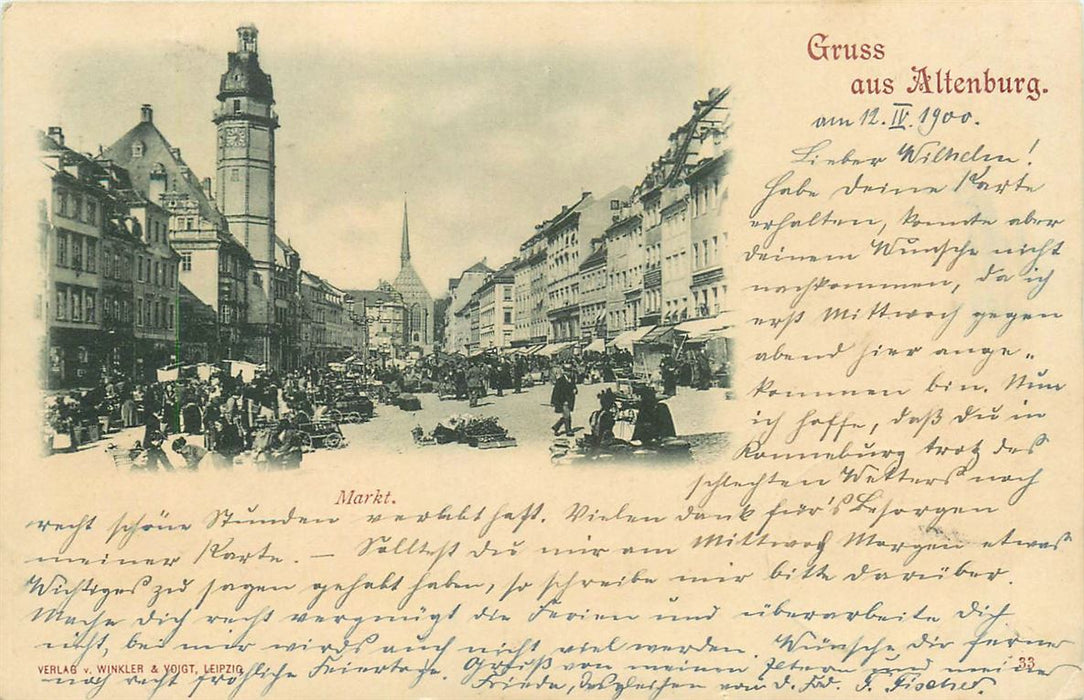 Gruss
aus Altenburg.
am 12. IV. 1900.
Lieber Wilhelm!
Habe Deine Karte
erhalten, konnte aber
deinem Wunsche nicht
nachkommen, da ich
erst Mittwoch gegen
abend hier ange„
kommen bin. Nun
ich hoffe, daß du in
Ronneburg trotz des
schlechten Wetters noch
Markt.
recht schöne Stunden verlebt hast. Vielen Dank für's Besorgen
meiner Karte. — Solltest du mir am Mittwoch Morgen etwas
Wichtiges zu sagen gehabt haben, so schreibe mir bitte darüber.
Mache dich recht vergnügt die Ferien und überarbeite dich
nicht, bei mir wirds auch nicht viel werden. Wünsche Dir ferner
VERLAG v. WINKLER & VOIGT, LEIPZIG
33
noch recht fröhliche Feiertage. Gruß von meinen Eltern und meine
Frieda, desgleichen von d. F. Fischer